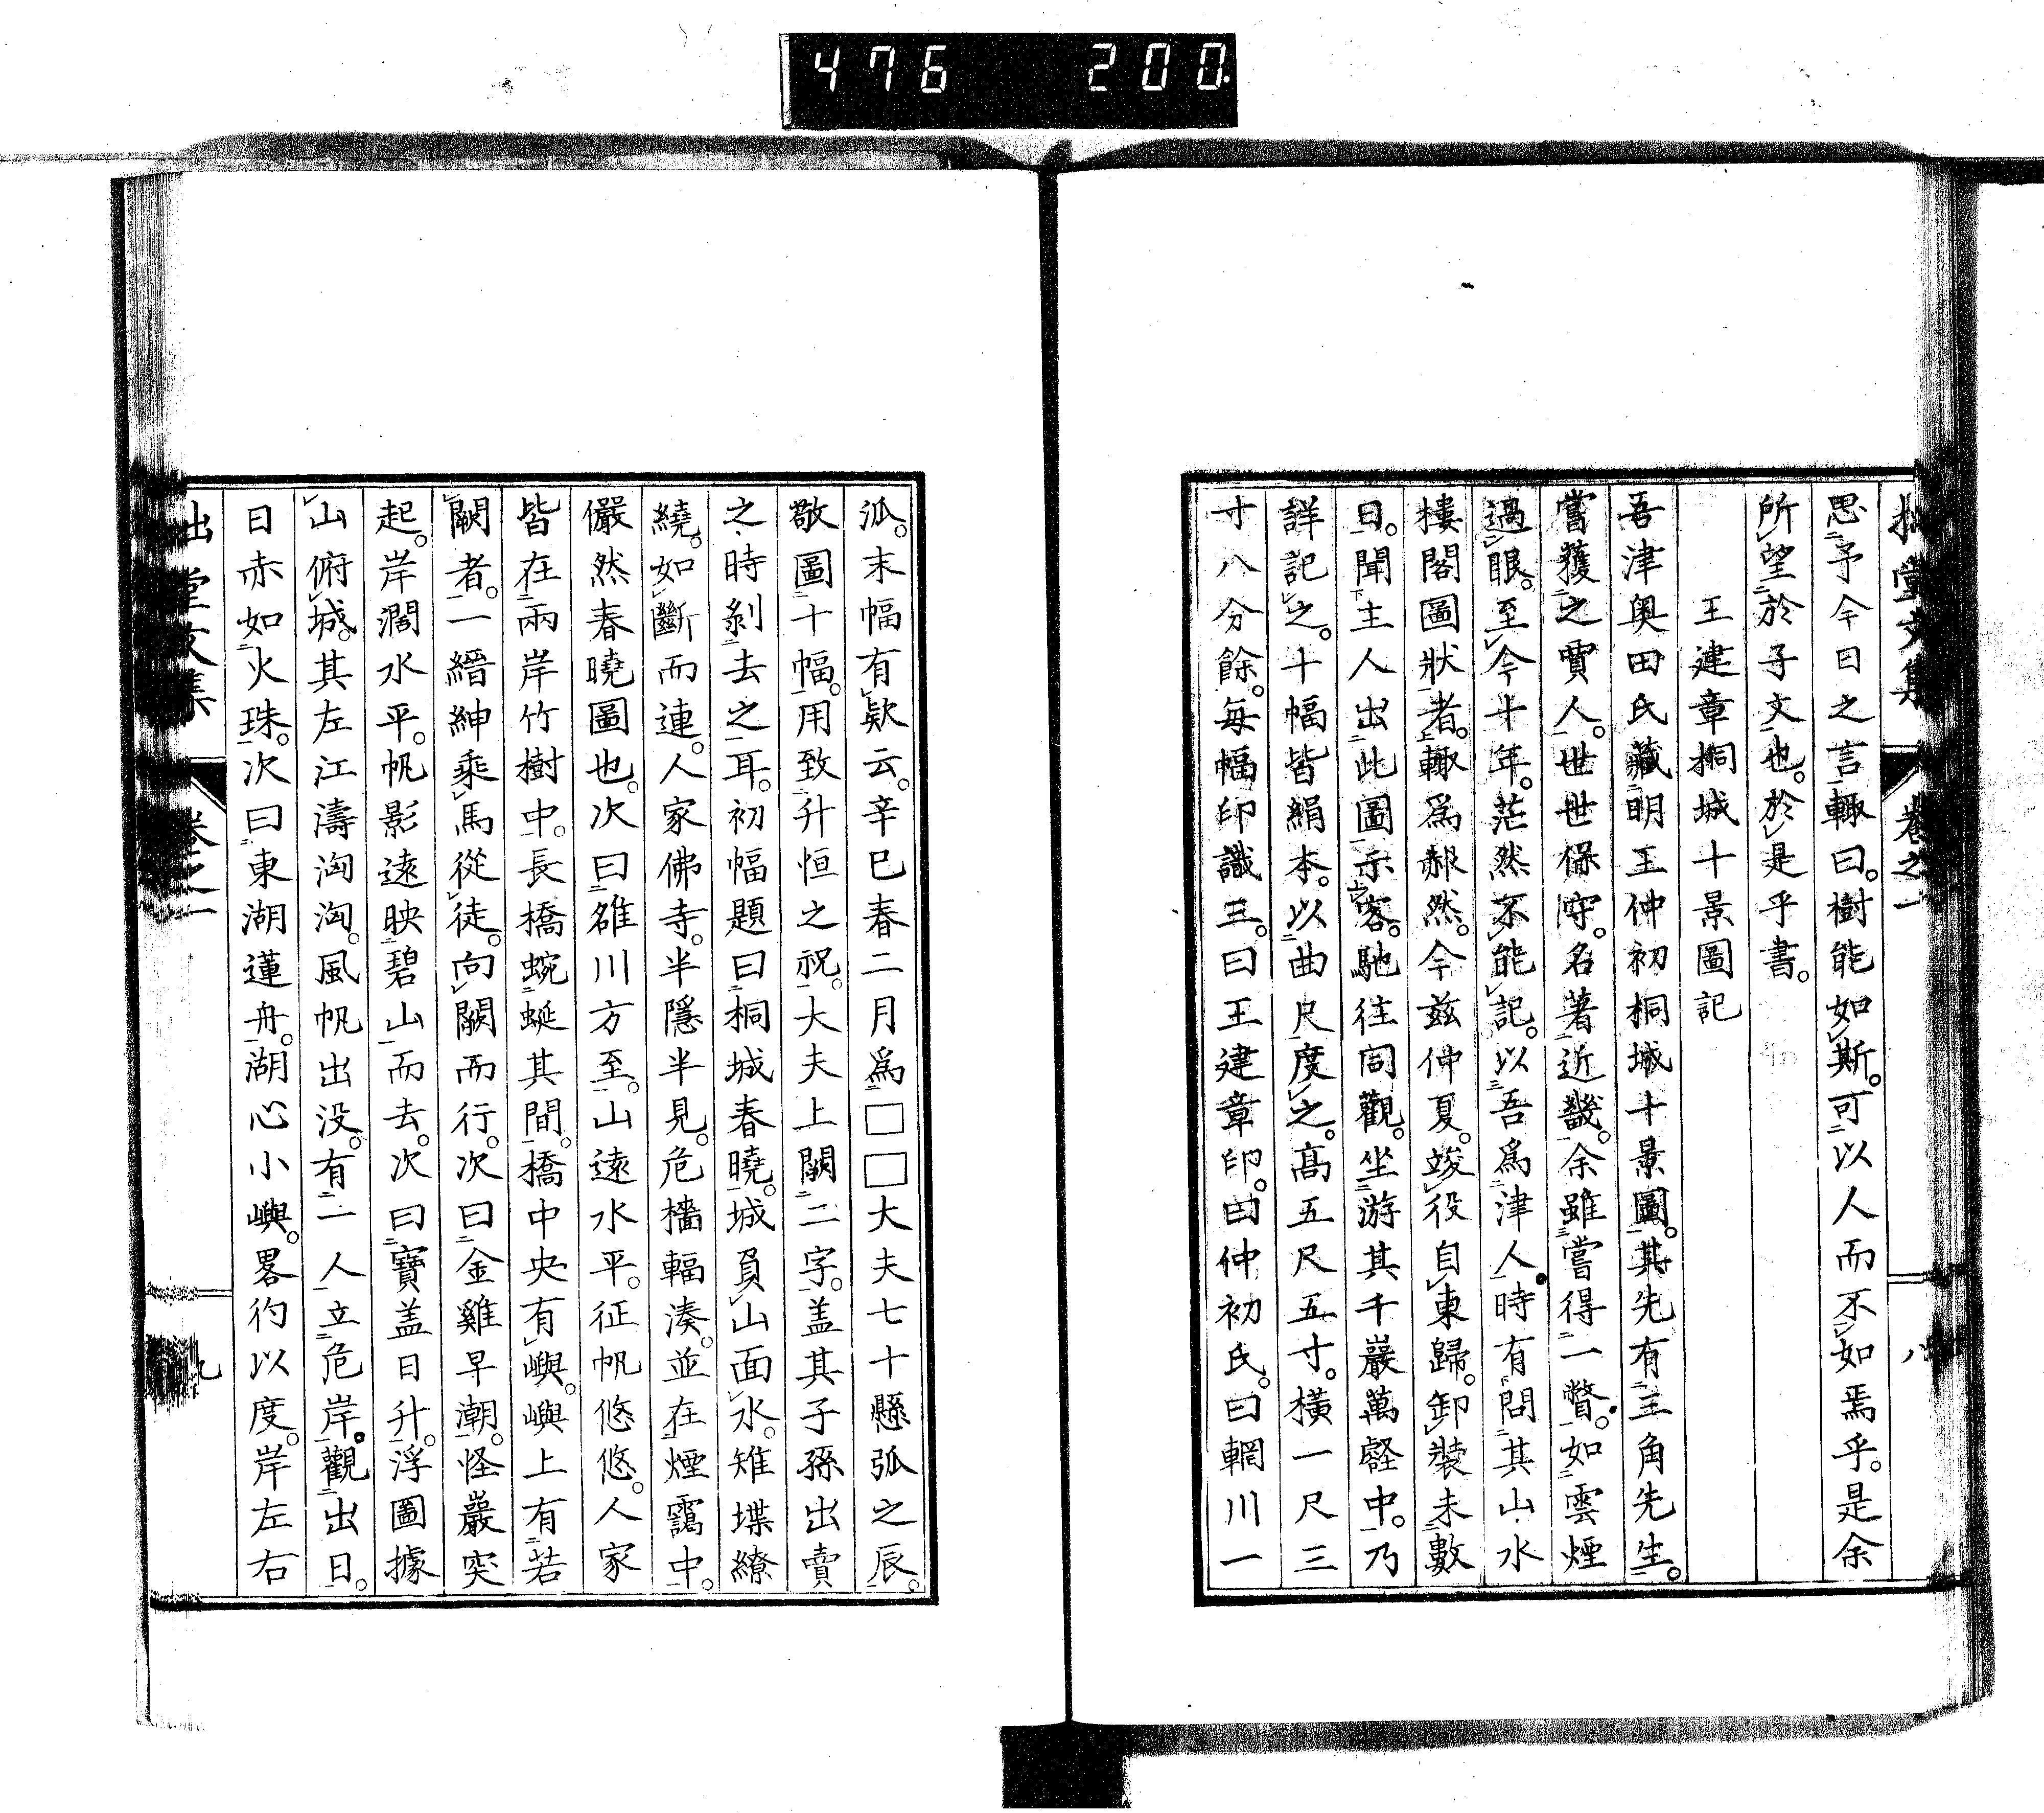 476 200.
拙堂文集 卷之一 八
思予今日之言輙曰。樹能如斯。可以人而不如焉乎。是余
所望於子文也。於是乎書。
王建章桐城十景圖記
吾津奥田氏藏明王仲初桐城十景圖。其先有三角先生。
嘗獲之賈人。世世保守。名著近畿。余雖嘗得一瞥。如雲煙
過眼。至今十年。茫然不能記。以吾爲津人。時有問其山水
樓閣圖狀者。輙爲赧然。今茲仲夏。竣役自東歸。卸裝未數
日。聞主人出此圖示客。馳往同觀。坐游其千巖萬壑中。乃
詳記之。十幅皆絹本。以曲尺度之。高五尺五寸。橫一尺三
寸八分餘。每幅印識三。曰王建章印。曰仲初氏。曰輞川一
派。末幅有欵云。辛巳春二月爲□□大夫七十懸弧之辰。
敬圖十幅。用致升恒之祝。大夫上闕二字。盖其子孫出賣
之時剝去之耳。初幅題曰桐城春曉。城負山面水。雉堞繚
繞。如斷而連。人家佛寺。半隱半見。危檣輻湊。並在煙靄中。
儼然春曉圖也。次曰雒川方至。山遠水平。征帆悠悠。人家
皆在兩岸竹樹中。長橋蜿蜒其間。橋中央有嶼。嶼上有若
闕者。一縉紳乘馬從徒。向闕而行。次曰金雞早潮。怪巖突
起。岸濶水平。帆影遠映碧山而去。次曰寶盖日升。浮圖據
山俯城。其左江濤洶洶。風帆出没。有一人立危岸。觀出日。
日赤如火珠。次曰東湖蓮舟。湖心小嶼。畧彴以度。岸左右
拙堂文集 卷之一 九